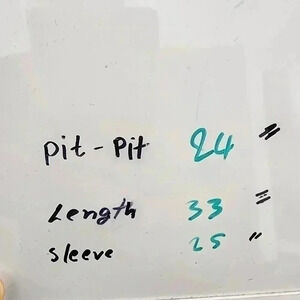 pit - pit 24 "
Length 33 "
sleeve 25 "